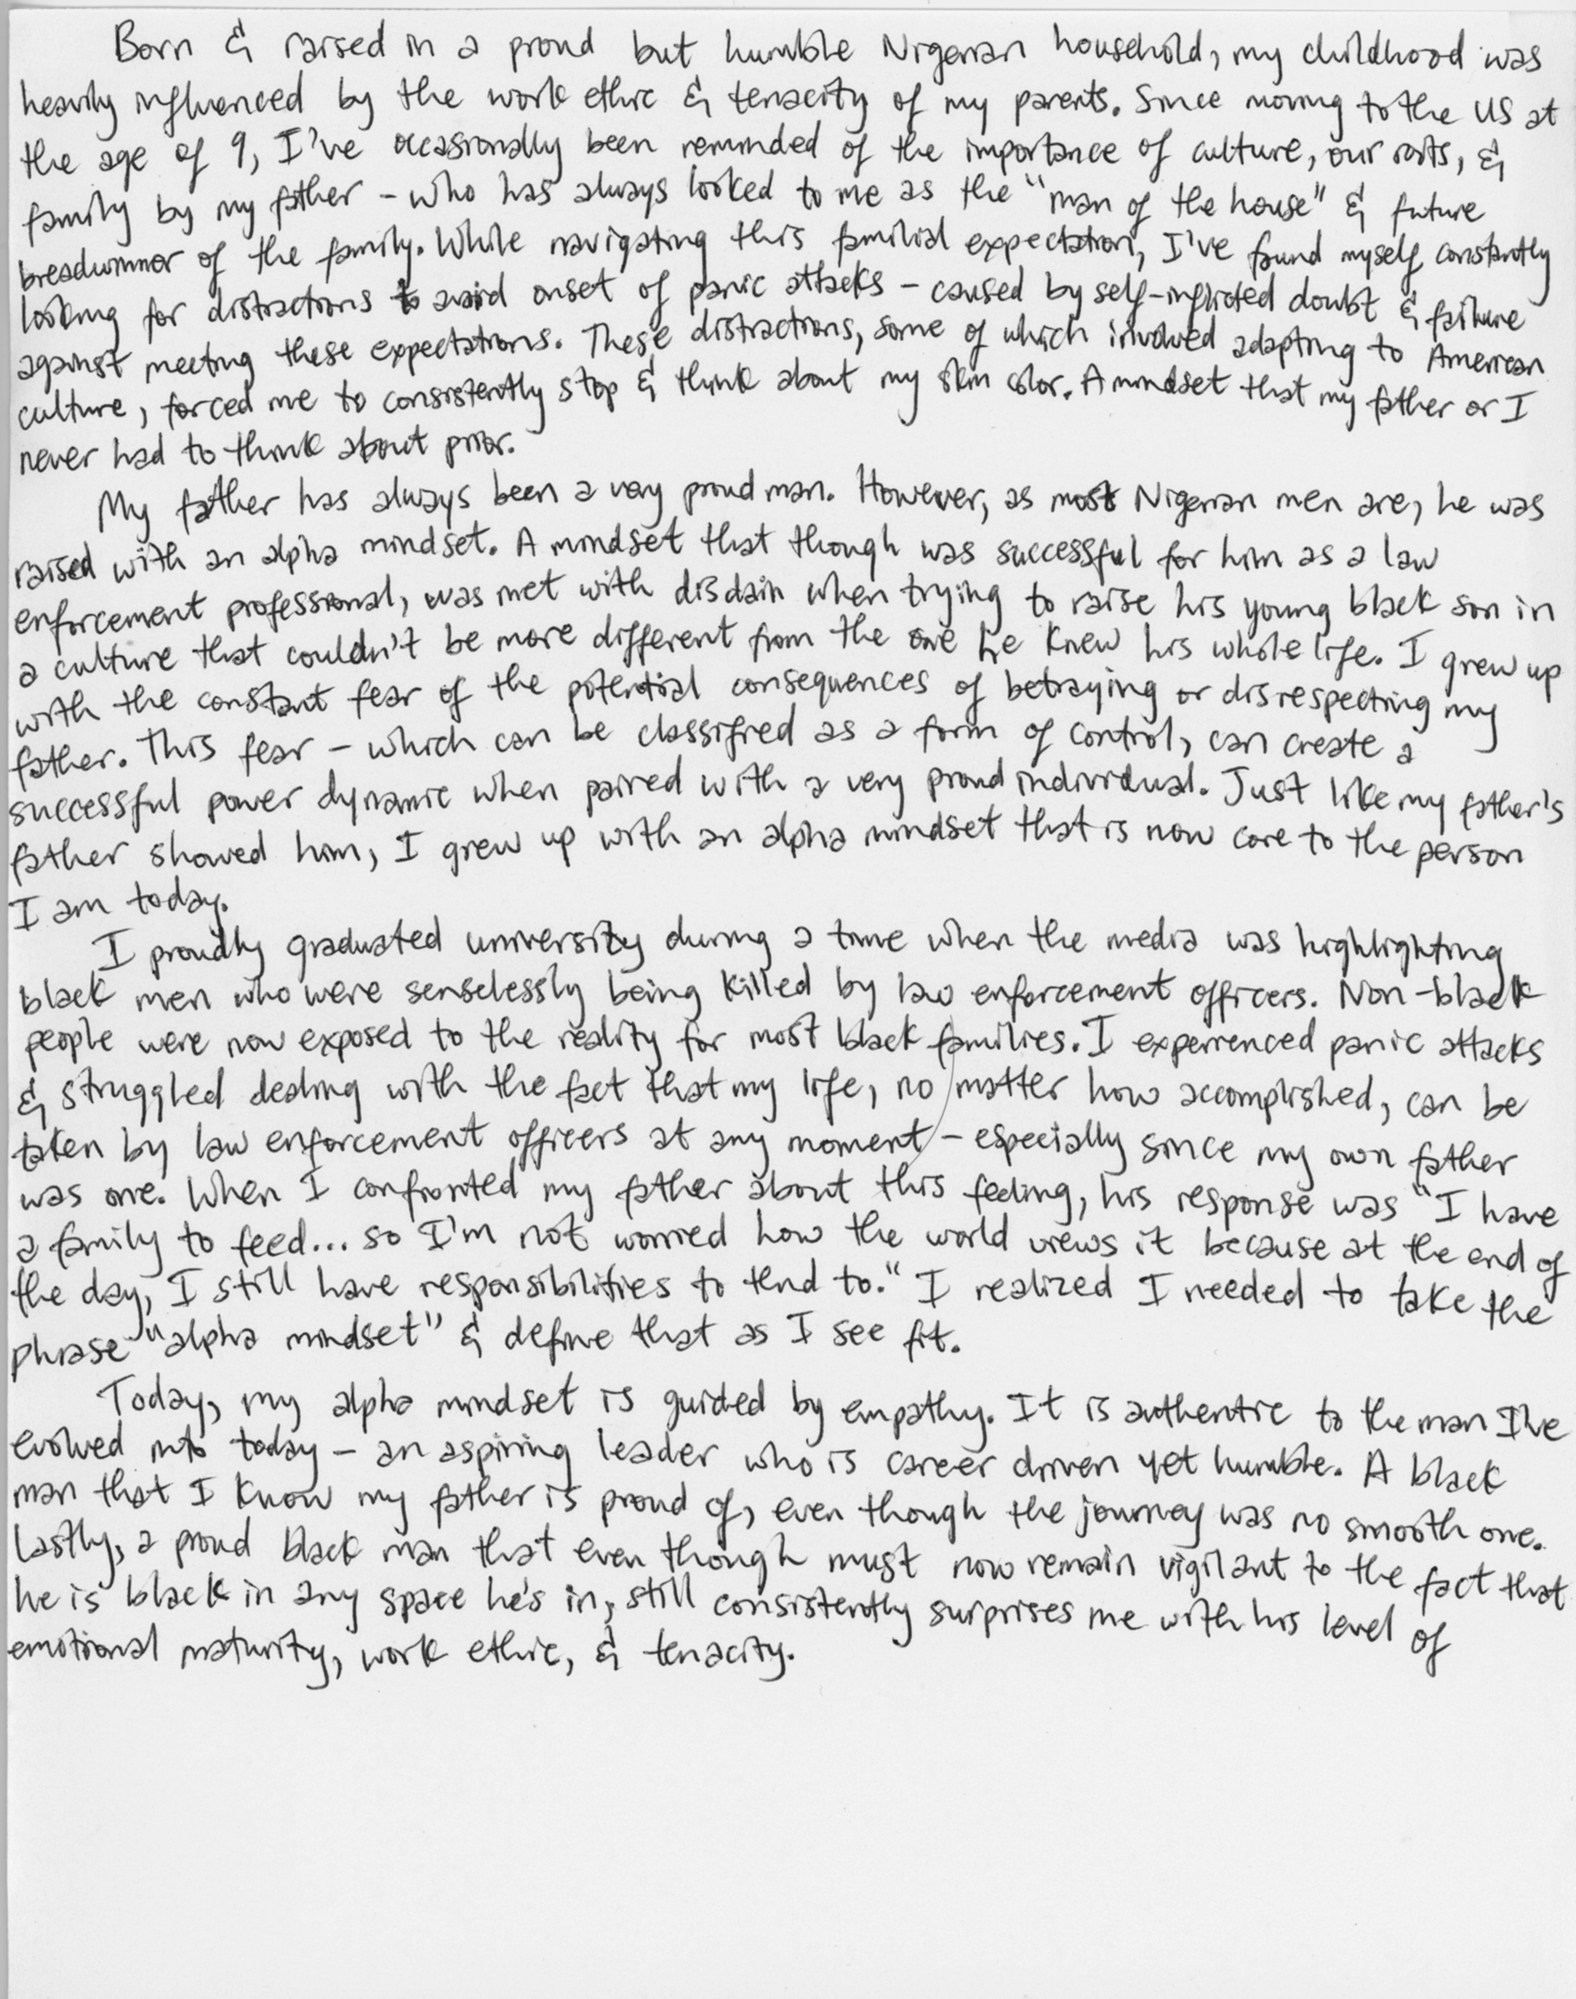 Born & raised in a proud but humble Nigerian household, my childhood was
heavily influenced by the work ethic & tenacity of my parents. Since moving to the US at
the age of 9, I've occasionally been reminded of the importance of culture, our roots, &
family by my father - who has always looked to me as the "man of the house" & future
breadwinner of the family. While navigating this familial expectation, I've found myself constantly
looking for distractions to avoid onset of panic attacks - caused by self-inflicted doubt & failure
against meeting these expectations. These distractions, some of which involved adapting to American
culture, forced me to consistently stop & think about my skin color. A mindset that my father or I
never had to think about prior.
My father has always been a very proud man. However, as most Nigerian men are, he was
raised with an alpha mindset. A mindset that though was successful for him as a law
enforcement professional, was met with disdain when trying to raise his young black son in
a culture that couldn't be more different from the one he knew his whole life. I grew up
with the constant fear of the potential consequences of betraying or disrespecting my
father. This fear - which can be classified as a form of control, can create a
successful power dynamic when paired with a very proud individual. Just like my father's
father showed him, I grew up with an alpha mindset that is now core to the person
I am today.
I proudly graduated university during a time when the media was highlighting
black men who were senselessly being killed by law enforcement officers. Non-black
people were now exposed to the reality for most black families. I experienced panic attacks
& struggled dealing with the fact that my life, no matter how accomplished, can be
taken by law enforcement officers at any moment - especially since my own father
was one. When I confronted my father about this feeling, his response was "I have
a family to feed... so I'm not worried how the world views it because at the end of
the day, I still have responsibilities to tend to." I realized I needed to take the
phrase "alpha mindset" & define that as I see fit.
Today, my alpha mindset is guided by empathy. It is authentic to the man I've
evolved into today - an aspiring leader who is career driven yet humble. A black
man that I know my father is proud of, even though the journey was no smooth one.
Lastly, a proud black man that even though must now remain vigilant to the fact that
he is black in any space he's in, still consistently surprises me with his level of
emotional maturity, work ethic, & tenacity.